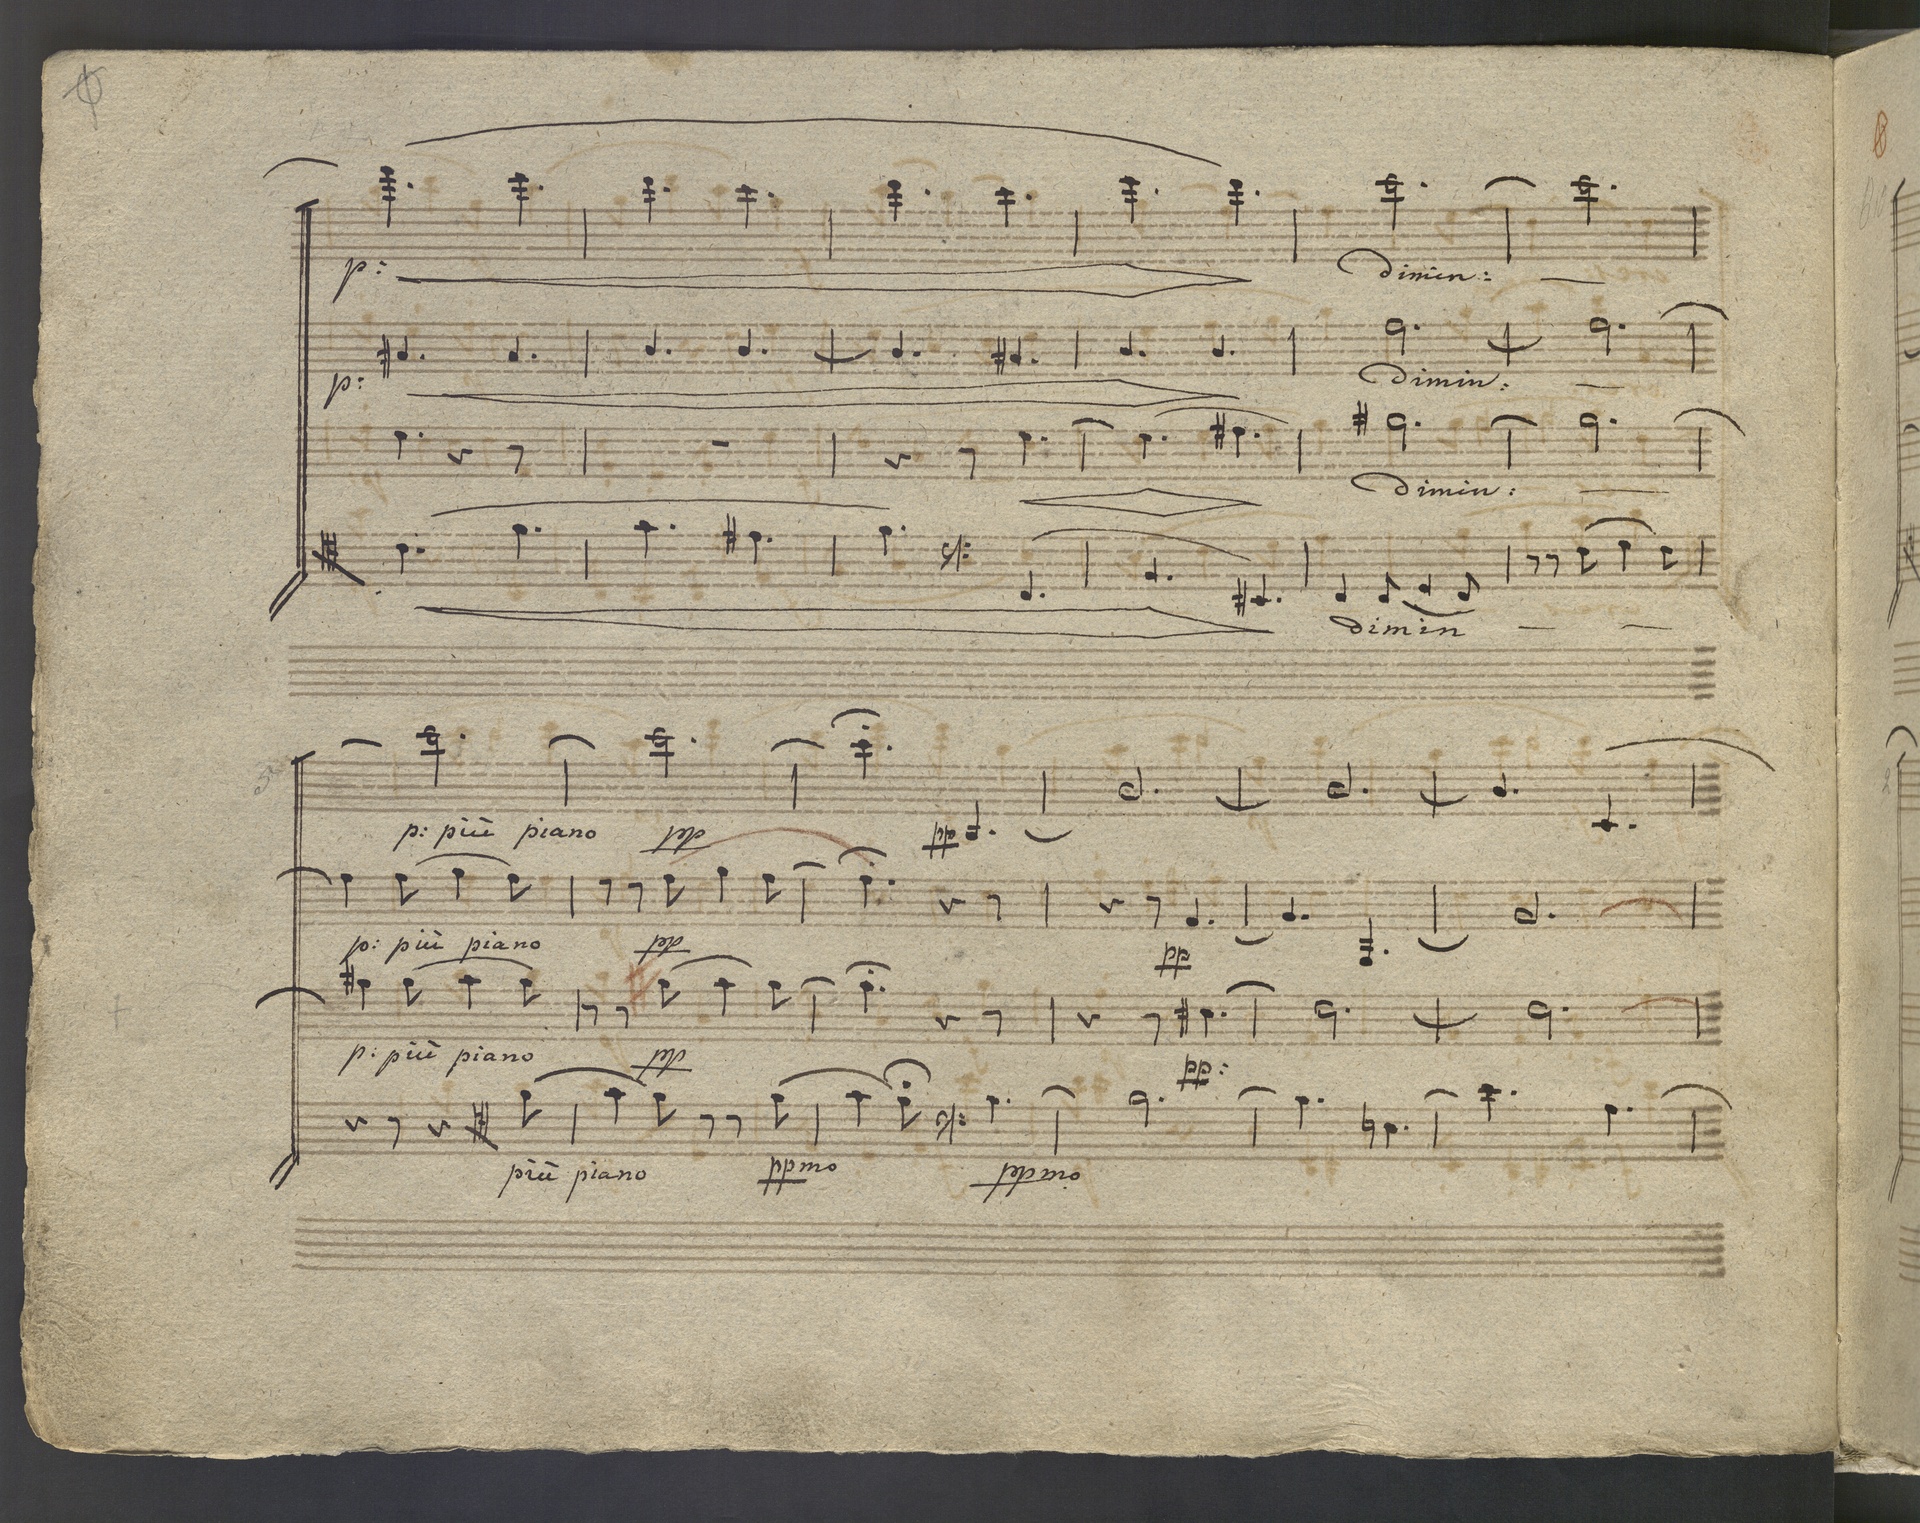 p:
dimen:
p:
dimin:
dimin:
dimin
p: più piano pp pp
p: più piano pp pp
p: più piano pp pp:
più piano ppmo ppmo